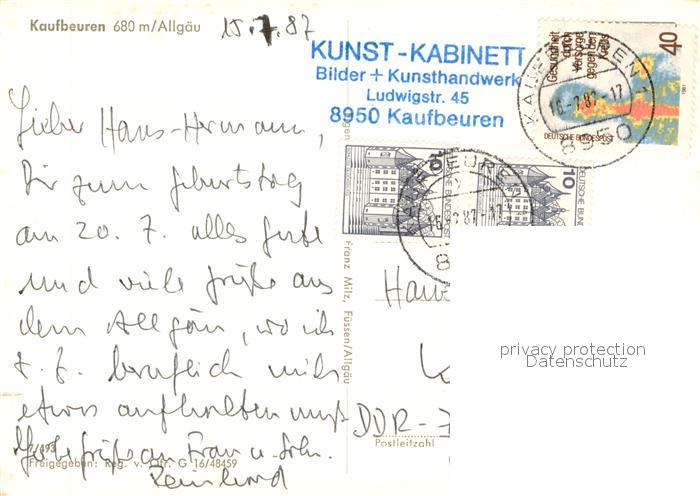 Kaufbeuren 680 m/Allgäu
15.7.87
KUNST-KABINETT
Bilder + Kunsthandwerk
Ludwigstr. 45
8950 Kaufbeuren
Gesundheit
durch
Vorsorge
gegen den
Krebs
40
1981
DEUTSCHE BUNDESPOST
16.-7.87-17
8950
10
10
DEUTSCHE BUN
Lieber Hans-Hermann,
Dir zum Geburtstag
am 20. 7. alles Gute
und viele Grüße aus
dem Allgäu, wo ich
z. Z. beruflich mich
etwas aufhalten muß.
Grüße an Frau u. Sohn.
Reinhard
7/493
Freigegeben: Reg. v. Obb. G 16/48459
Franz Milz, Füssen/Allgäu
Han
DDR-7
Postleitzahl
privacy protection
Datenschutz